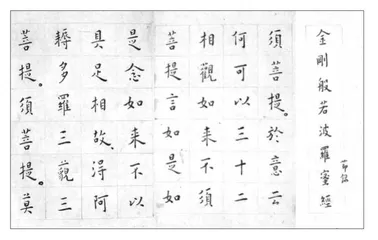 金剛般若波羅蜜經
須菩提。於意云
何可以三十二
相觀如来不須
菩提言如是如
是念如来不以
具足相故、得阿
耨多羅三藐三
菩提。須菩提。莫